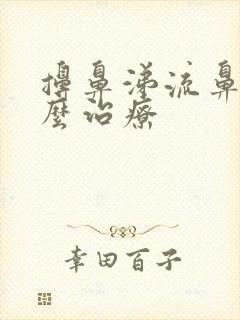 擤鼻涕流鼻
麽治療
幸田百子